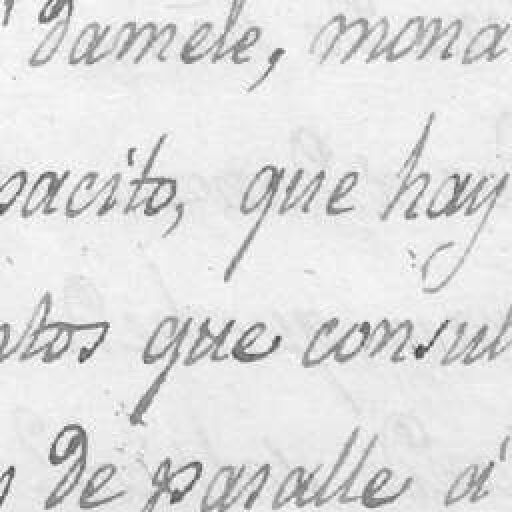 Damele, mona
pacito, que hay
ntos que consul
s De pasalle á